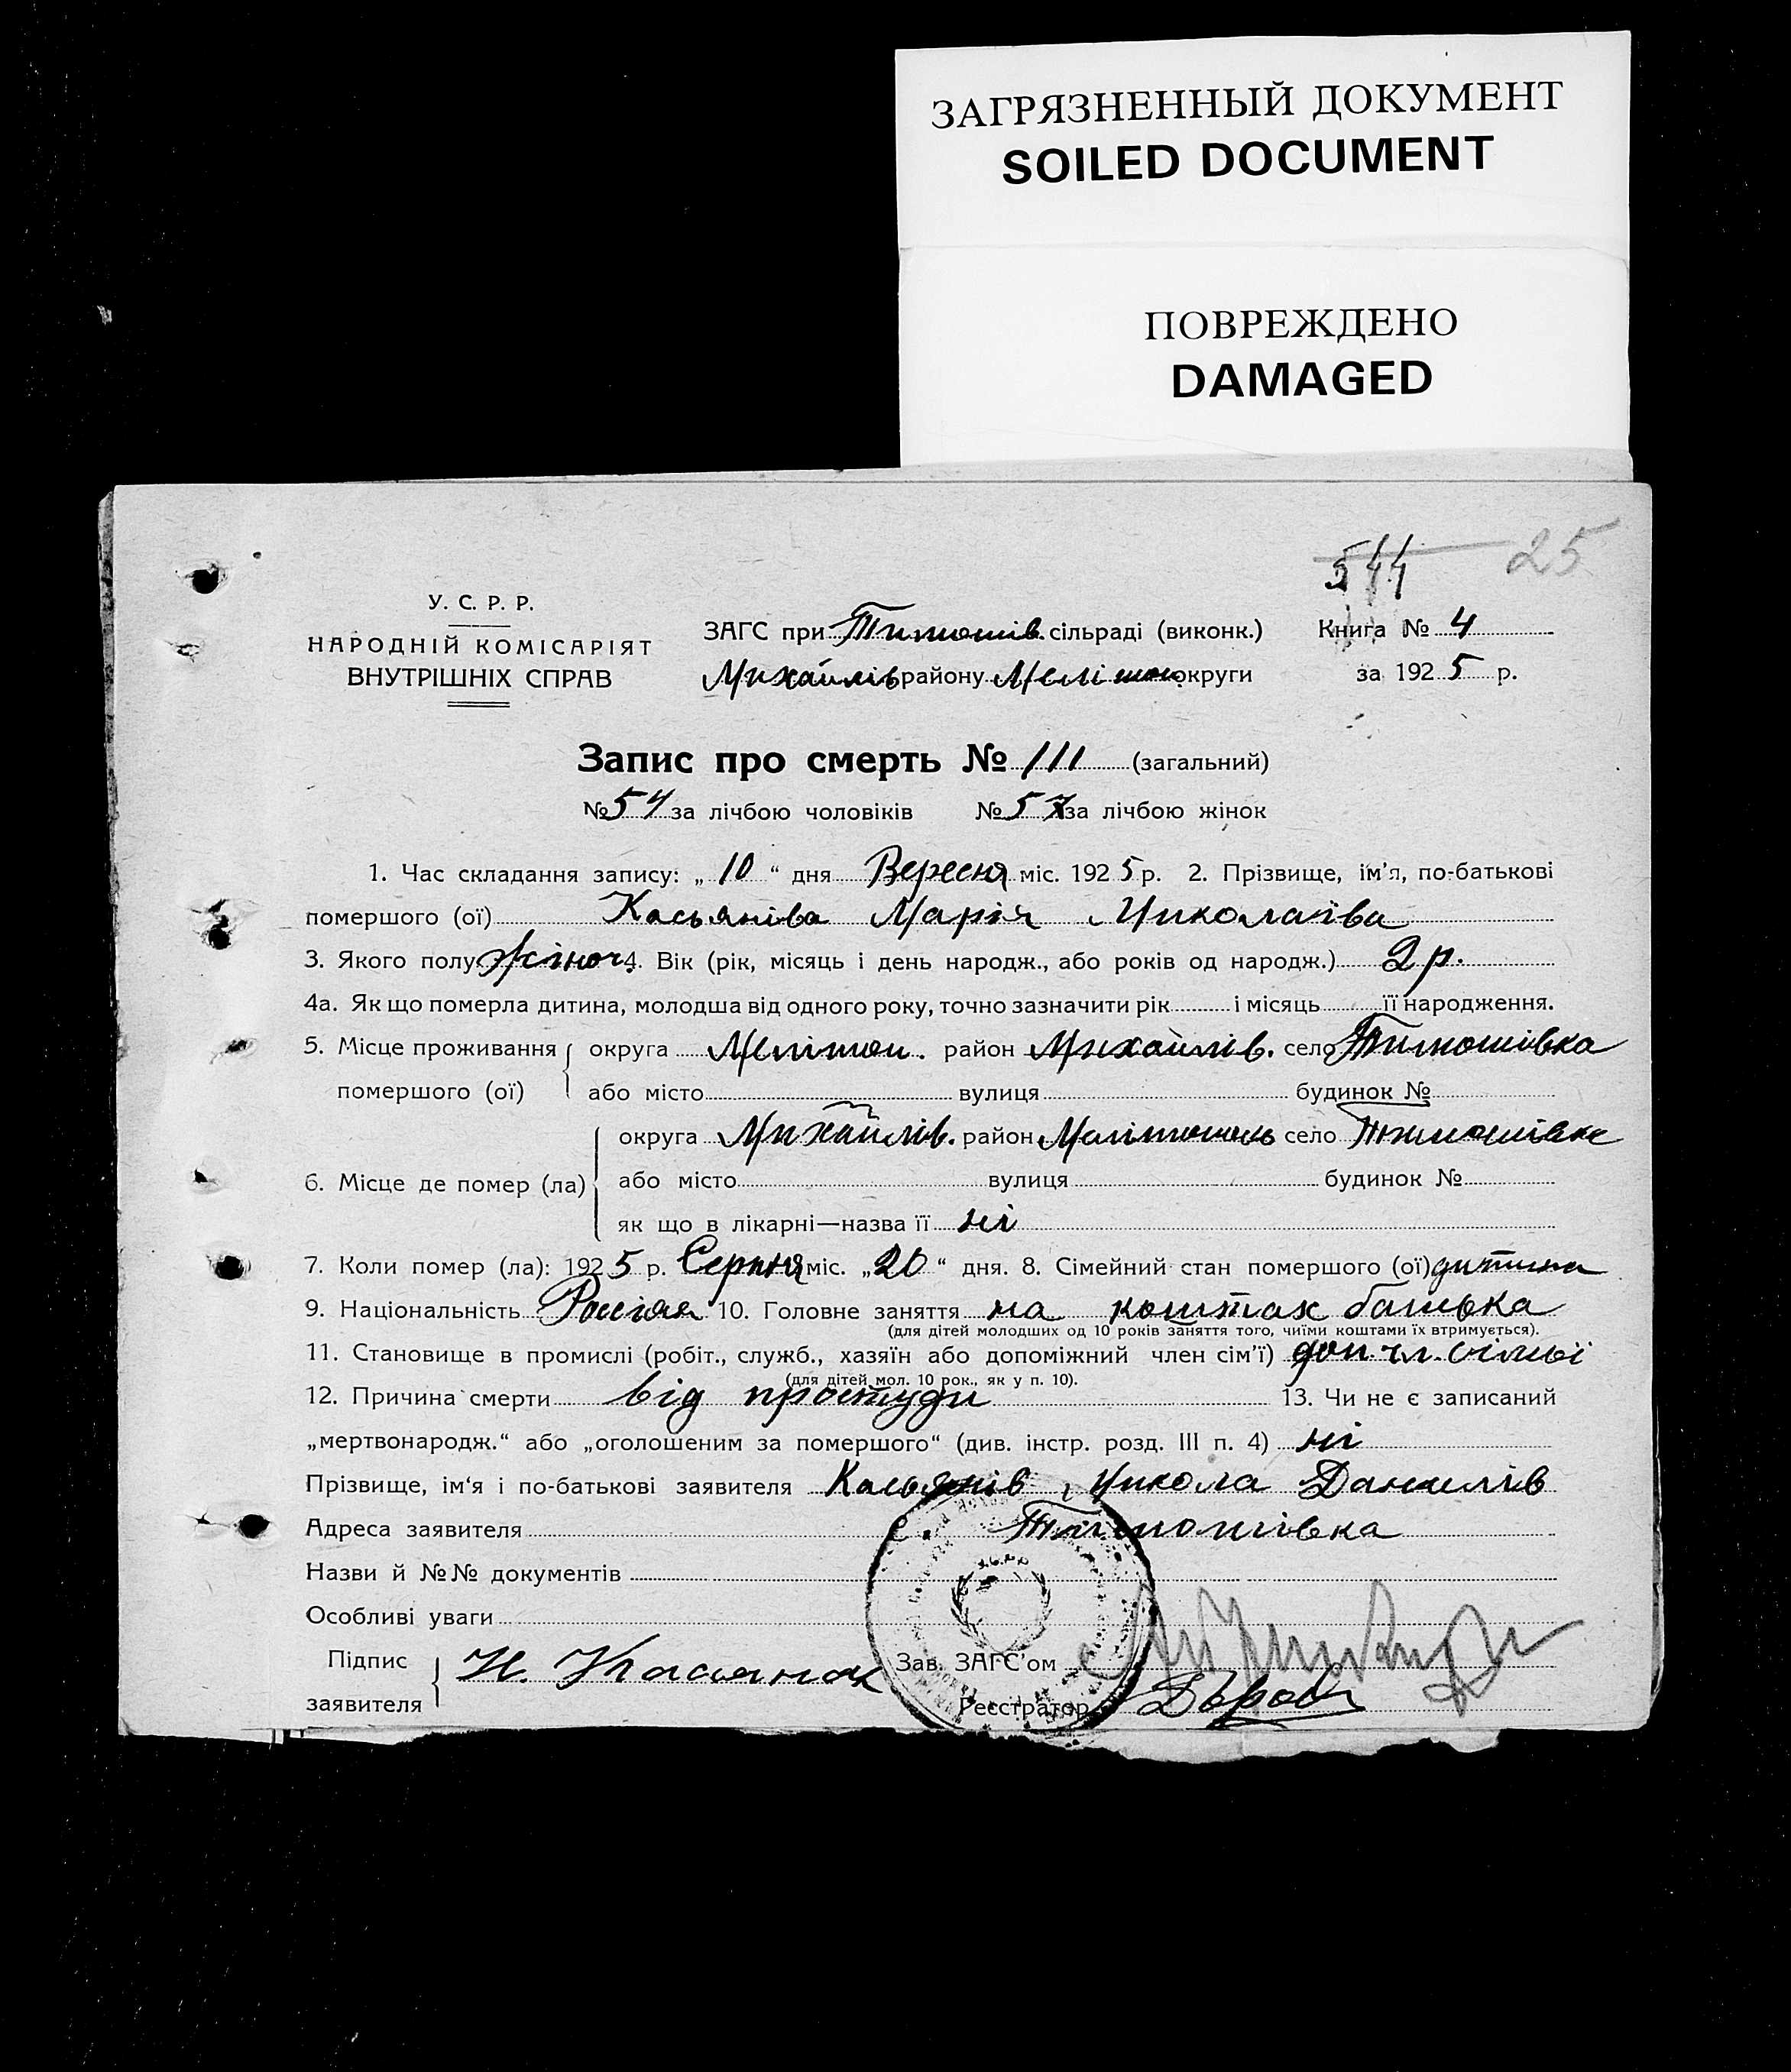 ЗАГРЯЗНЕННЫЙ ДОКУМЕНТ
SOILED DOCUMENT
ПОВРЕЖДЕНО
DAMAGED
544 25
У. С. Р. Р.
НАРОДНІЙ КОМІСАРІЯТ
ВНУТРІШНІХ СПРАВ
ЗАГС при Тимошів. сільраді (виконк.) Книга № 4
Михайлів району Мелітоп. округи за 1925 р.
Запис про смерть № 111 (загальний)
№ 54 за лічбою чоловіків № 57 за лічбою жінок
1. Час складання запису: „ 10 “ дня Вересня міс. 1925 р. 2. Прізвище, ім’я, по-батькові
помершого (ої) Касьянівa Марія Миколаїва
3. Якого полу жіноч. 4. Вік (рік, місяць і день народж., або років од народж.) 2 р.
4а. Як що померла дитина, молодша від одного року, точно зазначити рік і місяць її народження.
5. Місце проживання помершого (ої) округа Мелітоп. район Михайлів. село Тимошівка
або місто вулиця будинок №
6. Місце де помер (ла) округа Михайлів. район Мелітополь село Тимошівка
або місто вулиця будинок №
як що в лікарні—назва її ні
7. Коли помер (ла): 1925 р. Серпня міс. „20“ дня. 8. Сімейний стан помершого (ої) дитина
9. Національність 10. Головне заняття на коштах батька
(для дітей молодших од 10 років заняття того, чиїми коштами їх втримується).
11. Становище в промислі (робіт., служб., хазяїн або допоміжний член сім’ї) доп. чл. сімьї
(для дітей мол. 10 рок., як у п. 10).
12. Причина смерти від простуди 13. Чи не є записаний
„мертвонародж.“ або „оголошеним за помершого“ (див. інстр. розд. III п. 4) ні
Прізвище, ім‘я і по-батькові заявителя Касьянів Микола Данилів
Адреса заявителя Тимошівка
Назви й №№ документів
Особливі уваги
Підпис заявителя Н. Касянов Зав. ЗАГС’ом
Реєстратор